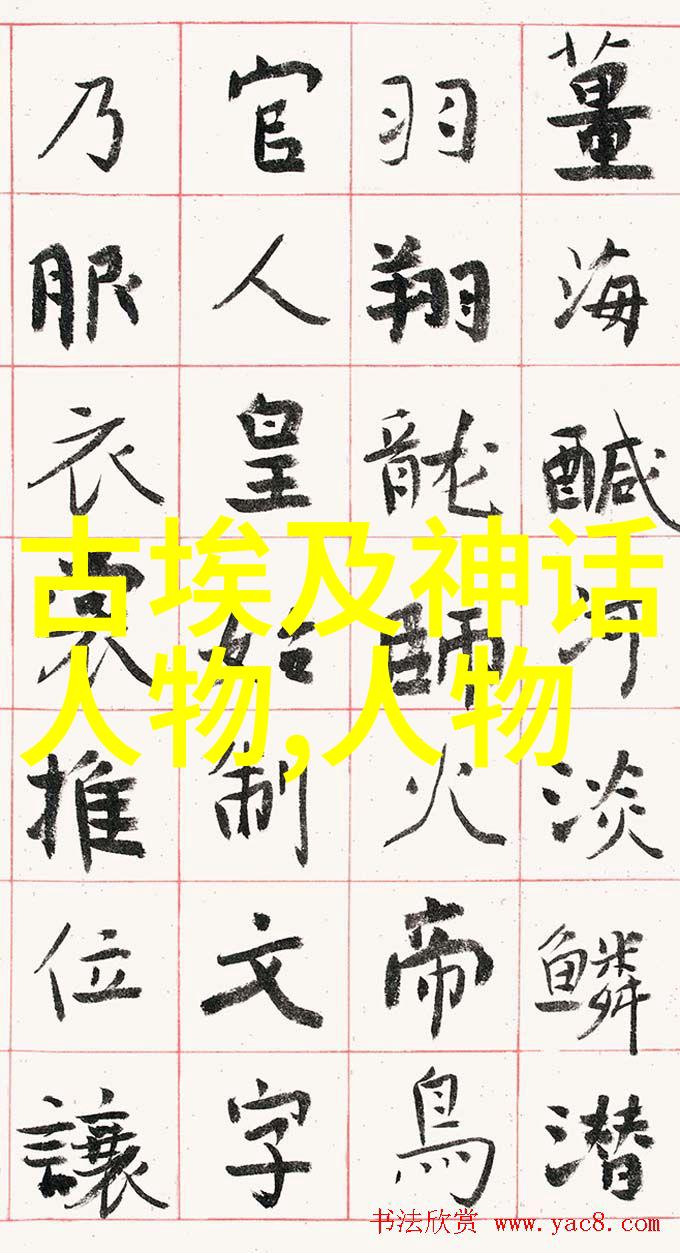 薑海鹹河淡鱗潛
羽翔龍師火帝鳥
官人皇始制文字
乃服衣裳推位讓
古埃及神话
人物,人物
书法欣赏 www.yac8.com